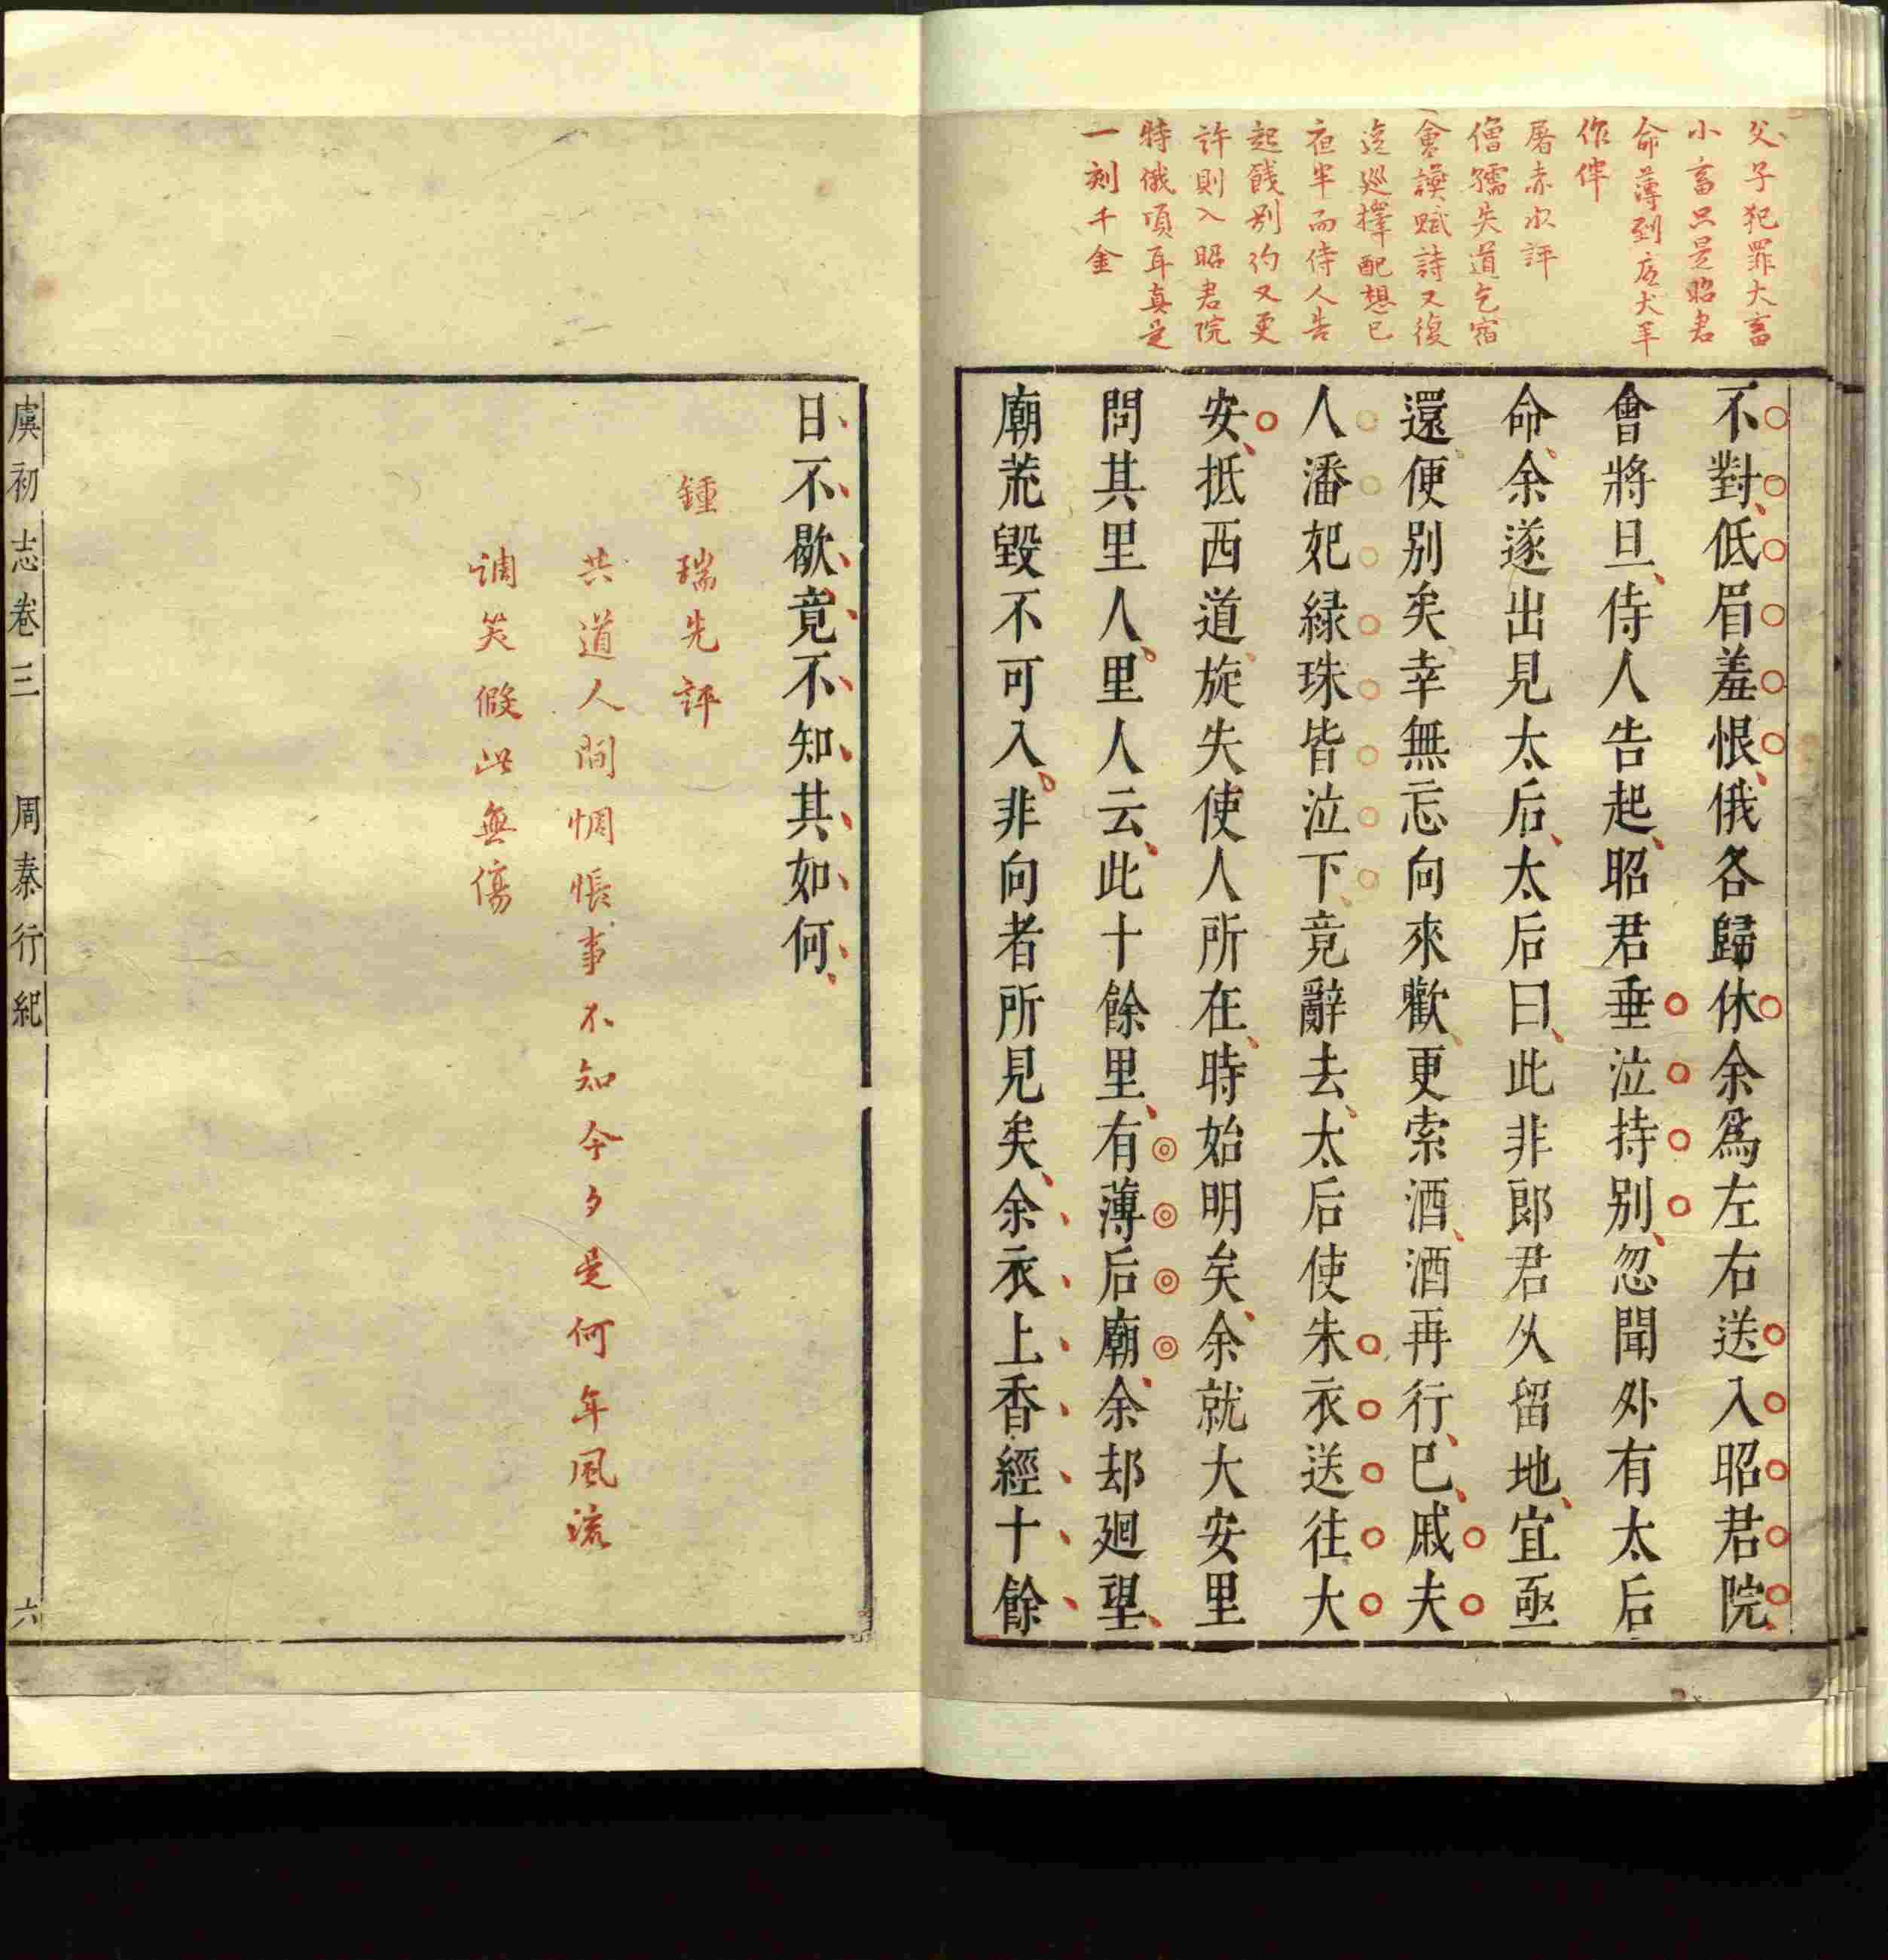 父子犯罪大畜
小畜只是昭君
命薄到底犬羊
作伴
屠赤水評
僧孺失道乞宿
會讌賦詩又復
逡巡擇配想已
夜半而侍人告
起餞别約又更
許則入昭君院
時俄頃耳真是
一刻千金
不對低眉羞恨俄各歸休余爲左右送入昭君院
會將旦侍人告起昭君垂泣持别忽聞外有太后
命余遂出見太后太后曰此非郎君久留地宜亟
還便别矣幸無忘向來歡更索酒酒再行巳戚夫
人潘妃緑珠皆泣下竟辭去太后使朱衣送往大
安抵西道旋失使人所在時始明矣余就大安里
問其里人里人云此十餘里有薄后廟余却廻望
廟荒毀不可入非向者所見矣余衣上香經十餘
日不歇竟不知其如何
鍾瑞先評
共道人間惆悵事不知今夕是何年風流
調笑假此無傷
虞初志卷三 周秦行紀 六